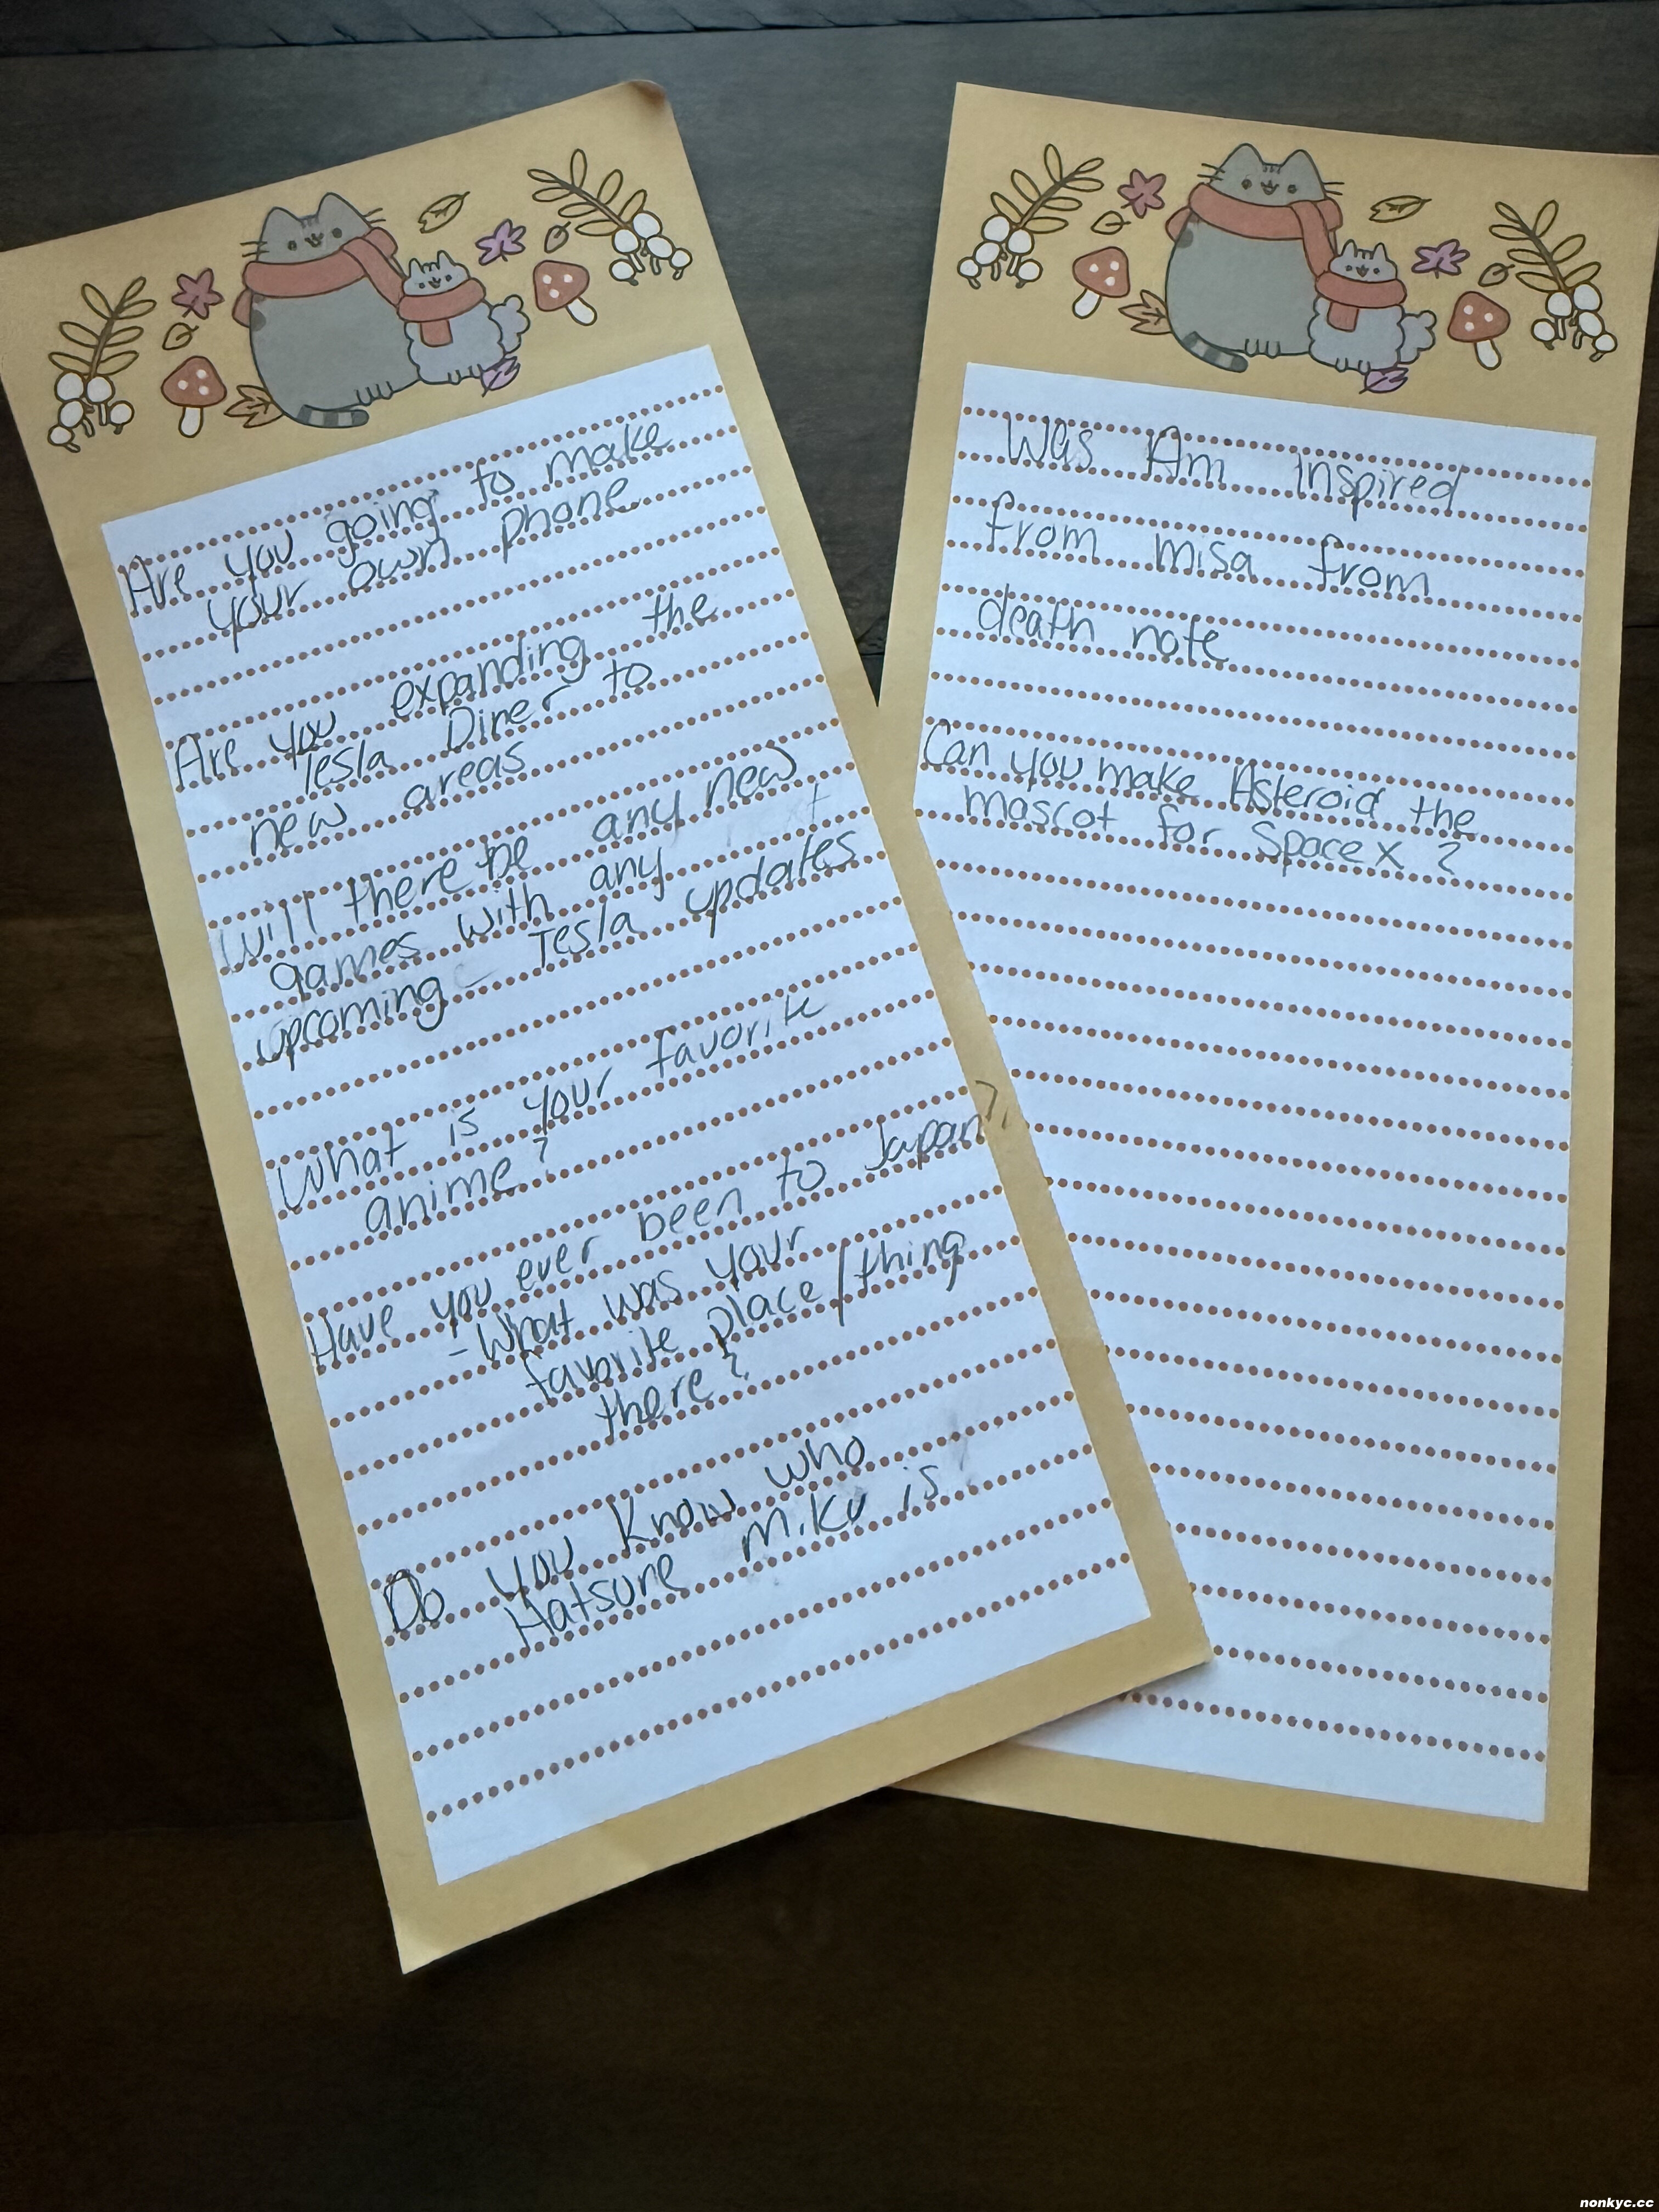 Are you going to make
your own phone
Are you expanding the
Tesla Diner to
new areas
Will there be any new
games with any
upcoming Tesla updates
What is your favorite
anime?
Have you ever been to Japan?
- What was your
favorite place/thing
there?
Do you know who
Hatsune Miku is
Was Am Inspired
from misa from
death note
Can you make Asteroid the
mascot for SpaceX ?
nonkyc.cc